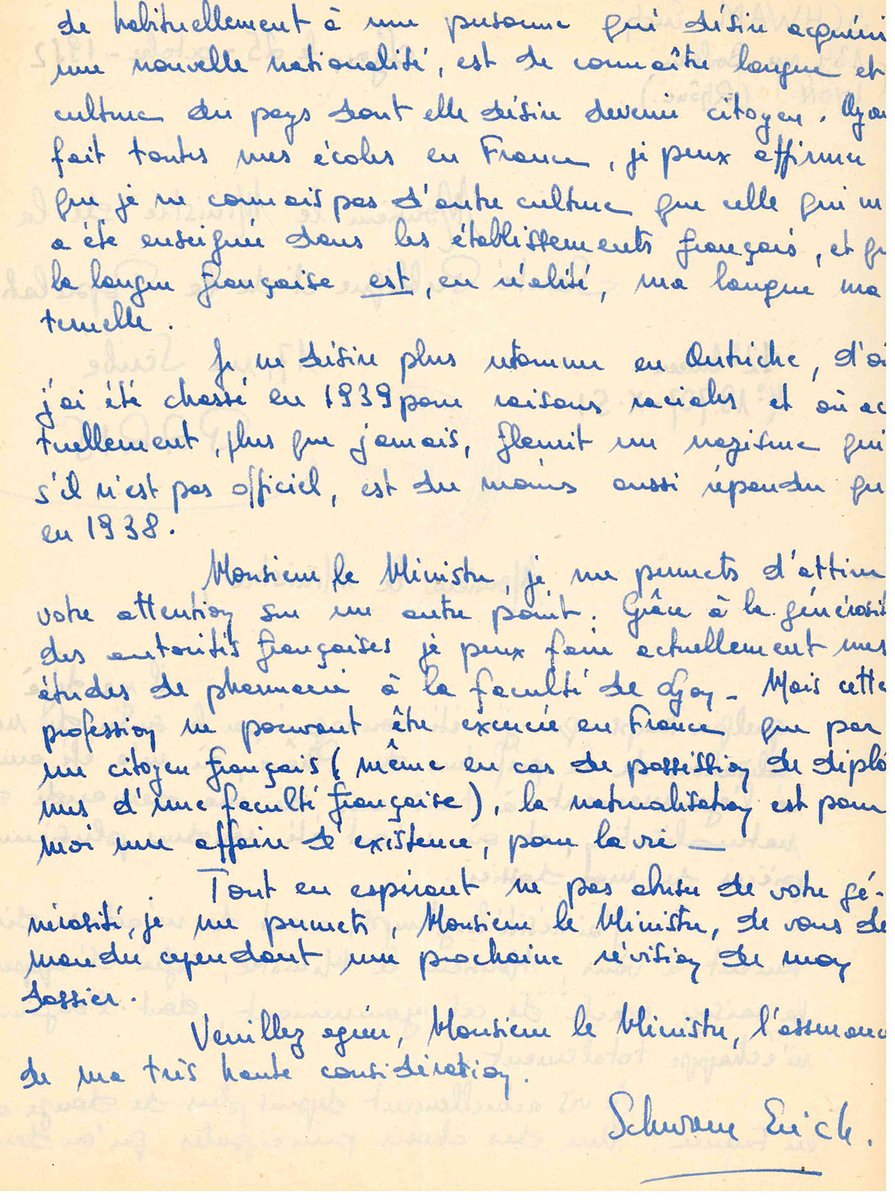 de habituellement à une personne qui désire acquéri
une nouvelle nationalité, est de connaître langue et
culture du pays dont elle désire devenir citoyen. Ayan
fait toutes mes écoles en France, je peux affirmer
que je ne connais pas d'autre culture que celle qui m
a été enseignée dans les établissements français, et qu
la langue française est, en réalité, ma langue ma
ternelle.
Je ne désire plus retourner en Autriche, d'où
j'ai été chassé en 1939 pour raisons raciales et où ac
tuellement, plus que jamais, fleurit un nazisme qui
s'il n'est pas officiel, est du moins aussi répandu qu
en 1938.
Monsieur le Ministre, je me permets d'attirer
votre attention sur un autre point. Grâce à la générosit
des autorités françaises je peux faire actuellement mes
études de pharmacie à la faculté de Lyon - Mais cette
profession ne pouvant être exercée en France que par
un citoyen français (même en cas de possession de diplô
mes d'une faculté française), la naturalisation est pour
moi une affaire d'existence, pour la vie —
Tout en espérant ne pas abuser de votre gé-
nérosité, je me permets Monsieur le Ministre, de vous de
mander cependant une prochaine révision de mon
dossier.
Veuillez agréer, Monsieur le Ministre, l'assurance
de ma très haute considération.
Schwam Erich.